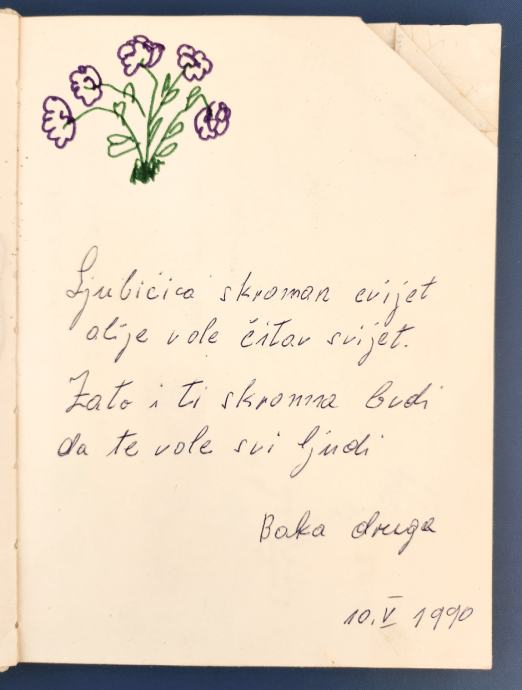 Ljubićica skroman cvijet
alije vole čitav svijet.
Zato i ti skromna budi
da te vole svi ljudi
Baka druga
10. V 1990